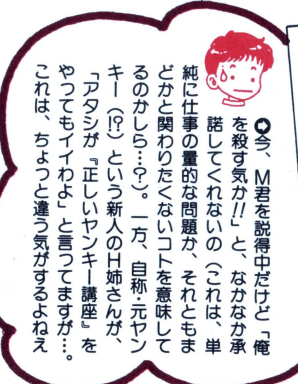 ➲今、M君を説得中だけど「俺
を殺す気か!!」と、なかなか承
諾してくれないの（これは、単
純に仕事の量的な問題か、それともま
どかと関わりたくないコトを意味して
るのかしら…?）。一方、自称・元ヤン
キー（!?）という新人のH姉さんが、
「アタシが『正しいヤンキー講座』を
やってもイイわよ」と言ってますが…。
これは、ちょっと違う気がするよねえ